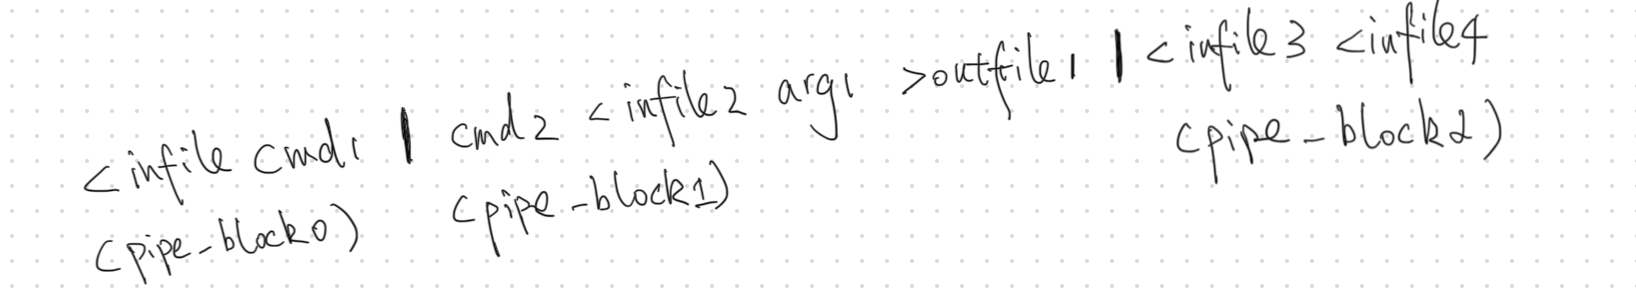 <infile cmd1 | cmd2 <infile2 arg1 >outfile1 | <infile3 <infile4
(pipe_block0) (pipe_block1) (pipe_block2)